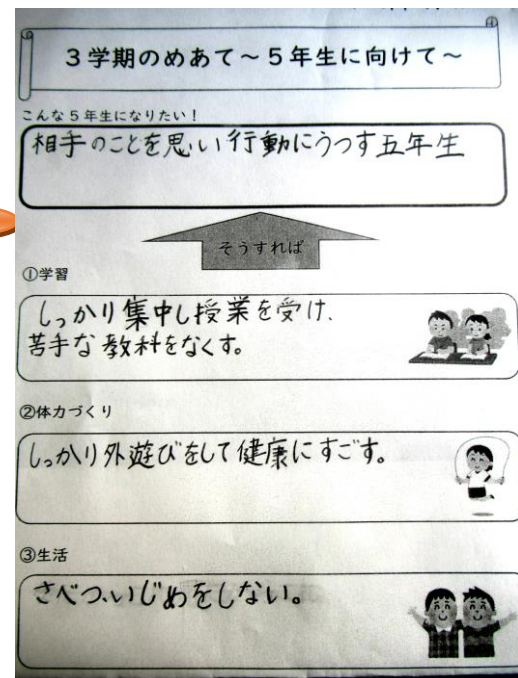 3学期のめあて～5年生に向けて～
こんな5年生になりたい！
相手のことを思い行動にうつす五年生
そうすれば
①学習
しっかり集中し授業を受け、
苦手な教科をなくす。
②体力づくり
しっかり外遊びをして健康にすごす。
③生活
さべつ、いじめをしない。